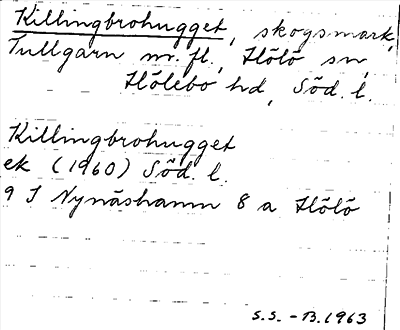 Killingbrohugget, skogsmark,
Tullgarn nr. fl., Hölö sn,
Hölebo hd, Söd. l.
Killingbrohugget
ek (1960) Söd. l.
9 I Nynäshamn 8 a Hölö
S.S. - B.1963